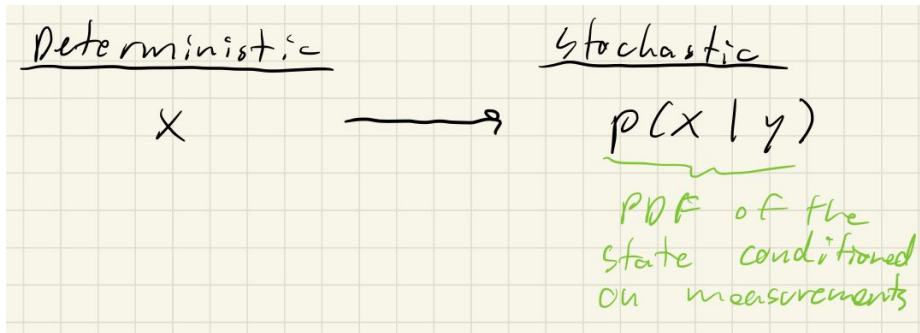 Deterministic
Stochastic
x
p(x | y)
PDF of the
state conditioned
on measurements